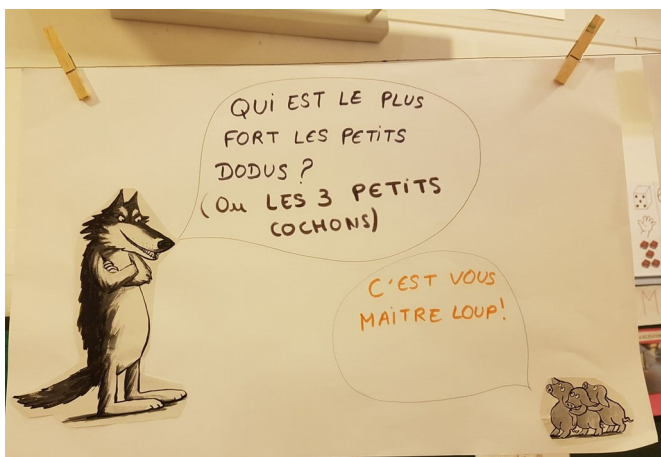 QUI EST LE PLUS
FORT LES PETITS
DODUS ?
(OU LES 3 PETITS
COCHONS)
C'EST VOUS
MAITRE LOUP!
M